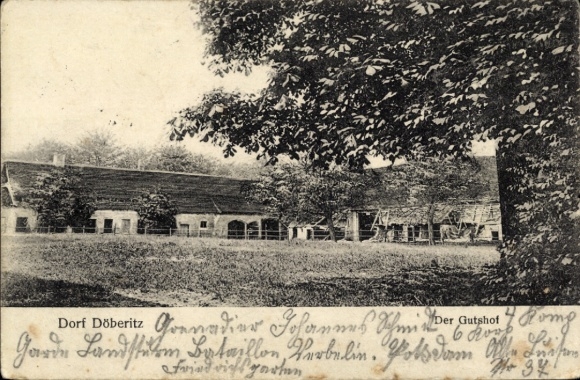 Dorf Döberitz
Der Gutshof
Grenadier Johannes Schmidt 6 Korp 4 Komp
Garde Landsturm Bataillon Verbelin. Potsdam Alte
Friedrichsgarten No 37